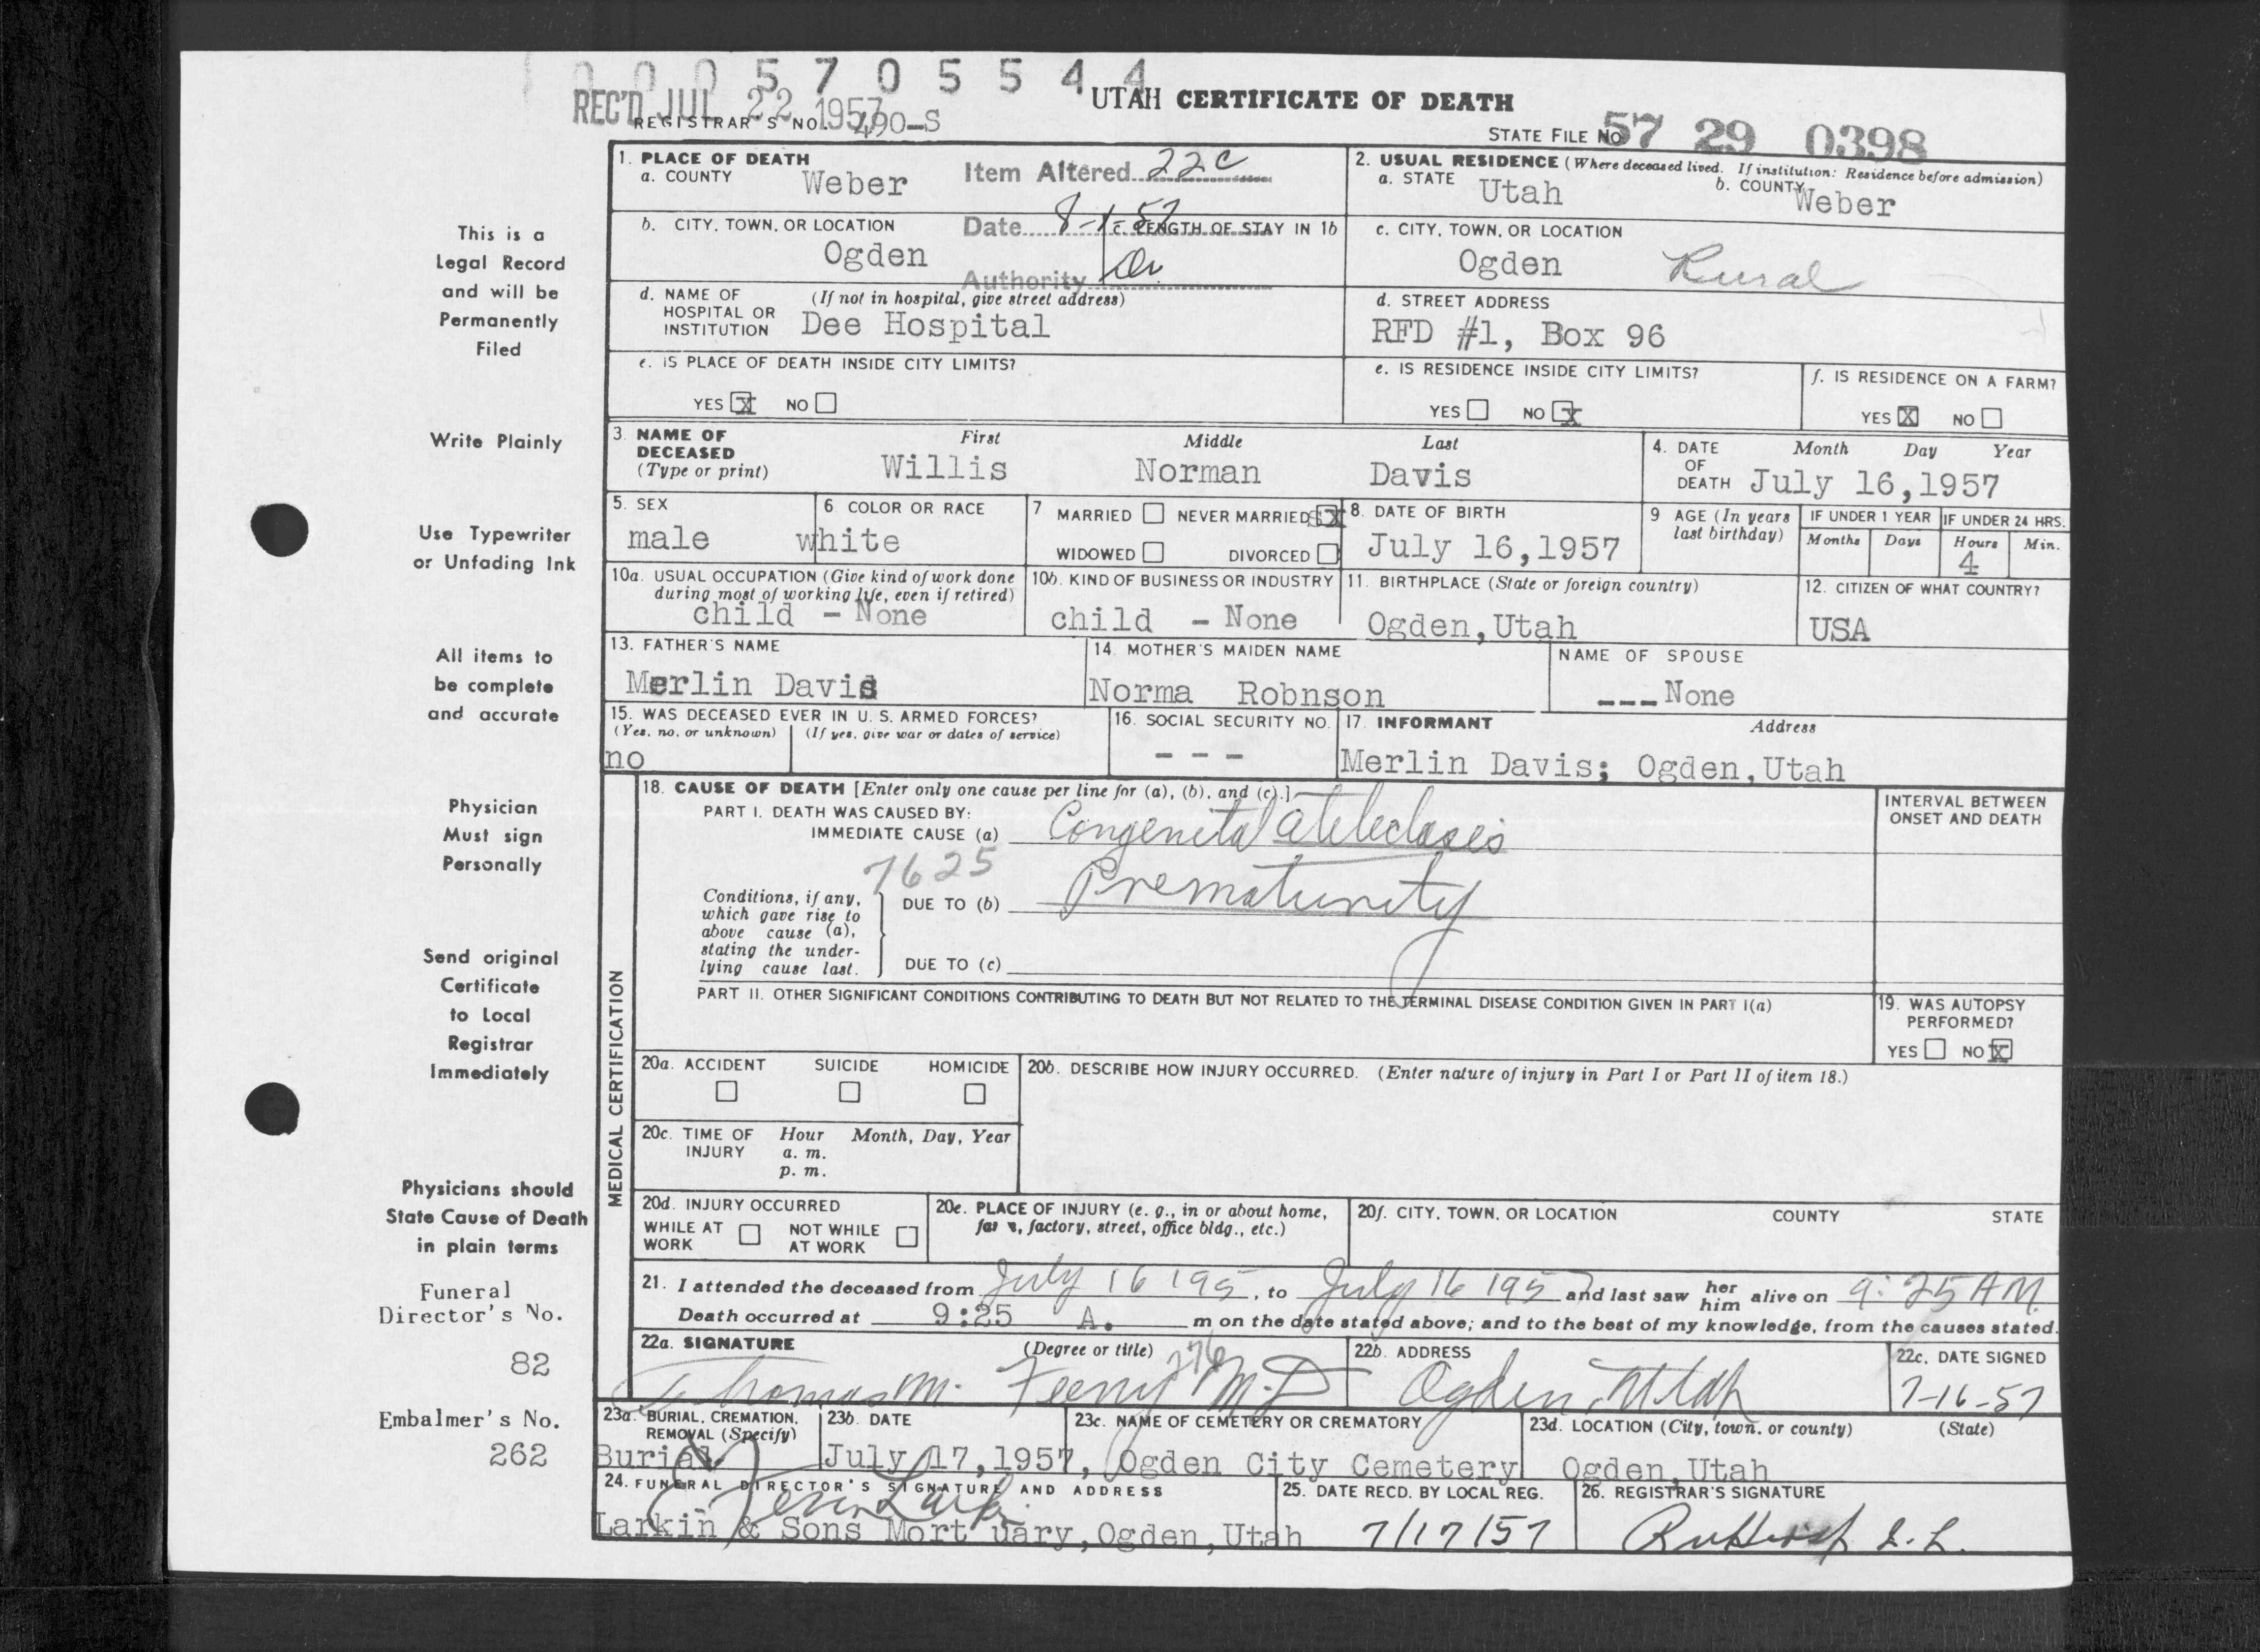 0 0 0 5 7 0 5 5 4 4
REC'D JUL 22 1957
UTAH CERTIFICATE OF DEATH
REGISTRAR'S NO. 490-S
STATE FILE NO 57 29 0398
1. PLACE OF DEATH
a. COUNTY Weber
Item Altered 22c
2. USUAL RESIDENCE (Where deceased lived. If institution: Residence before admission)
a. STATE Utah b. COUNTY Weber
b. CITY, TOWN, OR LOCATION Ogden
Date 8-1-57
c. LENGTH OF STAY IN 1b
Authority
c. CITY, TOWN, OR LOCATION
Ogden Rural
d. NAME OF HOSPITAL OR INSTITUTION (If not in hospital, give street address)
Dee Hospital
d. STREET ADDRESS
RFD #1, Box 96
e. IS PLACE OF DEATH INSIDE CITY LIMITS?
YES X NO
e. IS RESIDENCE INSIDE CITY LIMITS?
YES NO X
f. IS RESIDENCE ON A FARM?
YES X NO
3. NAME OF DECEASED (Type or print)
First Middle Last
Willis Norman Davis
4. DATE OF DEATH Month Day Year
July 16,1957
5. SEX
male
6. COLOR OR RACE
white
7. MARRIED NEVER MARRIED X
WIDOWED DIVORCED
8. DATE OF BIRTH
July 16,1957
9. AGE (In years last birthday)
IF UNDER 1 YEAR
Months Days
IF UNDER 24 HRS.
Hours Min.
4
10a. USUAL OCCUPATION (Give kind of work done during most of working life, even if retired)
child - None
10b. KIND OF BUSINESS OR INDUSTRY
child - None
11. BIRTHPLACE (State or foreign country)
Ogden,Utah
12. CITIZEN OF WHAT COUNTRY?
USA
13. FATHER'S NAME
Merlin Davis
14. MOTHER'S MAIDEN NAME
Norma Robnson
NAME OF SPOUSE
---None
15. WAS DECEASED EVER IN U. S. ARMED FORCES?
(Yes, no, or unknown) (If yes, give war or dates of service)
no
16. SOCIAL SECURITY NO.
- - -
17. INFORMANT Address
Merlin Davis; Ogden,Utah
MEDICAL CERTIFICATION
18. CAUSE OF DEATH [Enter only one cause per line for (a), (b), and (c).]
PART I. DEATH WAS CAUSED BY:
IMMEDIATE CAUSE (a) Congenital Atelectases
7625
Conditions, if any, which gave rise to above cause (a), stating the underlying cause last.
DUE TO (b) Prematurity
DUE TO (c)
INTERVAL BETWEEN ONSET AND DEATH
PART II. OTHER SIGNIFICANT CONDITIONS CONTRIBUTING TO DEATH BUT NOT RELATED TO THE TERMINAL DISEASE CONDITION GIVEN IN PART I(a)
19. WAS AUTOPSY PERFORMED?
YES NO X
20a. ACCIDENT SUICIDE HOMICIDE
20b. DESCRIBE HOW INJURY OCCURRED. (Enter nature of injury in Part I or Part II of item 18.)
20c. TIME OF INJURY Hour Month, Day, Year
a. m.
p. m.
20d. INJURY OCCURRED
WHILE AT WORK NOT WHILE AT WORK
20e. PLACE OF INJURY (e. g., in or about home, farm, factory, street, office bldg., etc.)
20f. CITY, TOWN, OR LOCATION COUNTY STATE
21. I attended the deceased from July 16 195, to July 16 1957 and last saw her him alive on 9:25 AM.
Death occurred at 9:25 A. m on the date stated above; and to the best of my knowledge, from the causes stated.
22a. SIGNATURE (Degree or title)
Thomas M. Feeny M.D
276
22b. ADDRESS
Ogden, Utah
22c. DATE SIGNED
7-16-57
23a. BURIAL, CREMATION, REMOVAL (Specify)
Burial
23b. DATE
July 17,1957,
23c. NAME OF CEMETERY OR CREMATORY
Ogden City Cemetery
23d. LOCATION (City, town, or county) (State)
Ogden,Utah
24. FUNERAL DIRECTOR'S SIGNATURE AND ADDRESS
Larkin & Sons Mort uary,Ogden,Utah
25. DATE RECD. BY LOCAL REG.
7/17/57
26. REGISTRAR'S SIGNATURE
This is a
Legal Record
and will be
Permanently
Filed
Write Plainly
Use Typewriter
or Unfading Ink
All items to
be complete
and accurate
Physician
Must sign
Personally
Send original
Certificate
to Local
Registrar
Immediately
Physicians should
State Cause of Death
in plain terms
Funeral
Director's No.
82
Embalmer's No.
262